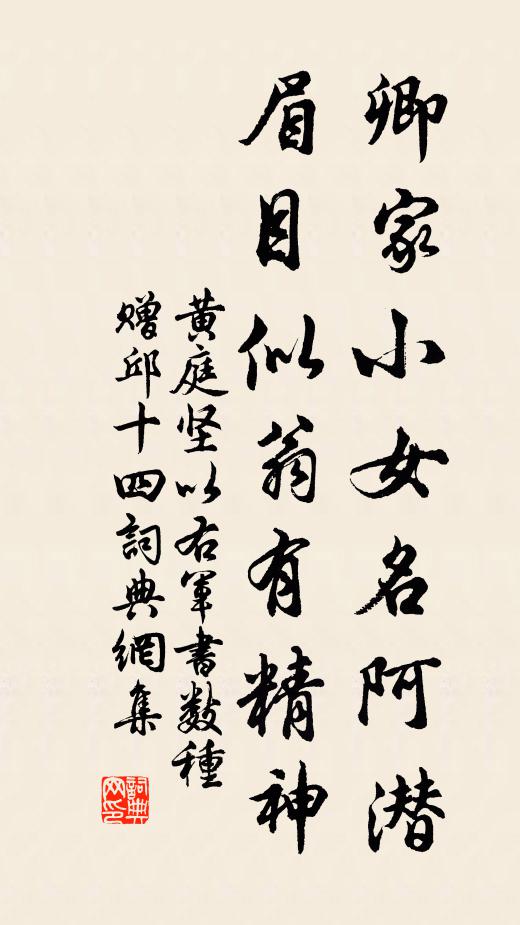 卿家小女名阿潜
眉目似翁有精神
黄庭坚以右军書数種
赠邱十四詞典網集
詞典网印